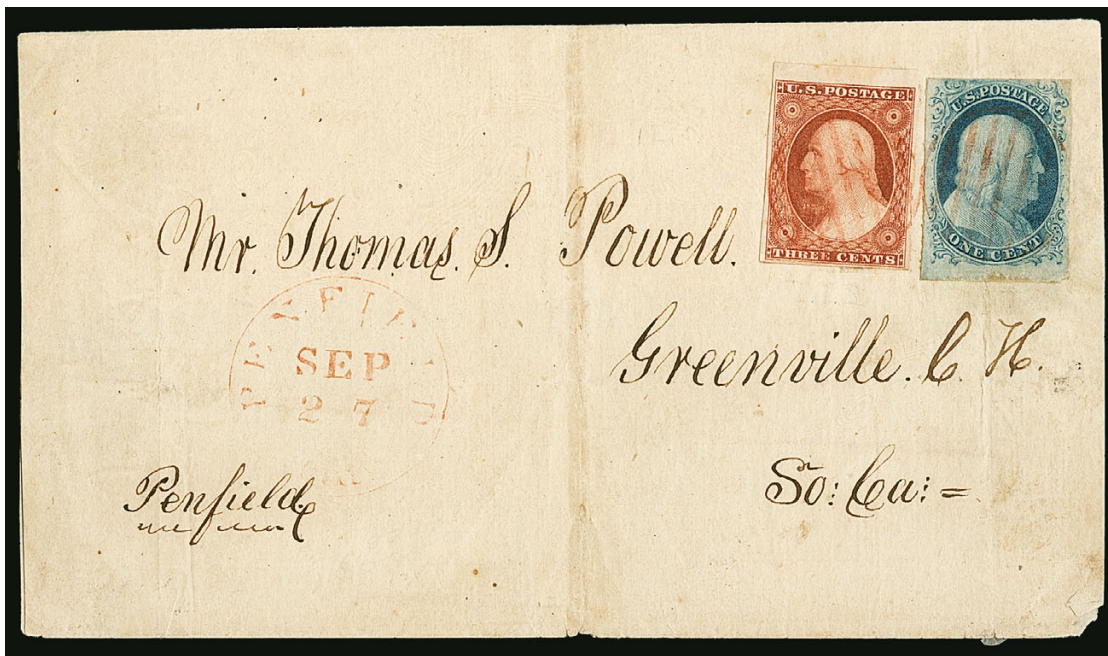 U.S. POSTAGE
THREE CENTS
U.S. POSTAGE
ONE CENT
Mr. Thomas. S. Powell.
Greenville. C. H.
So: Ca: =
SEP
27
Penfield.